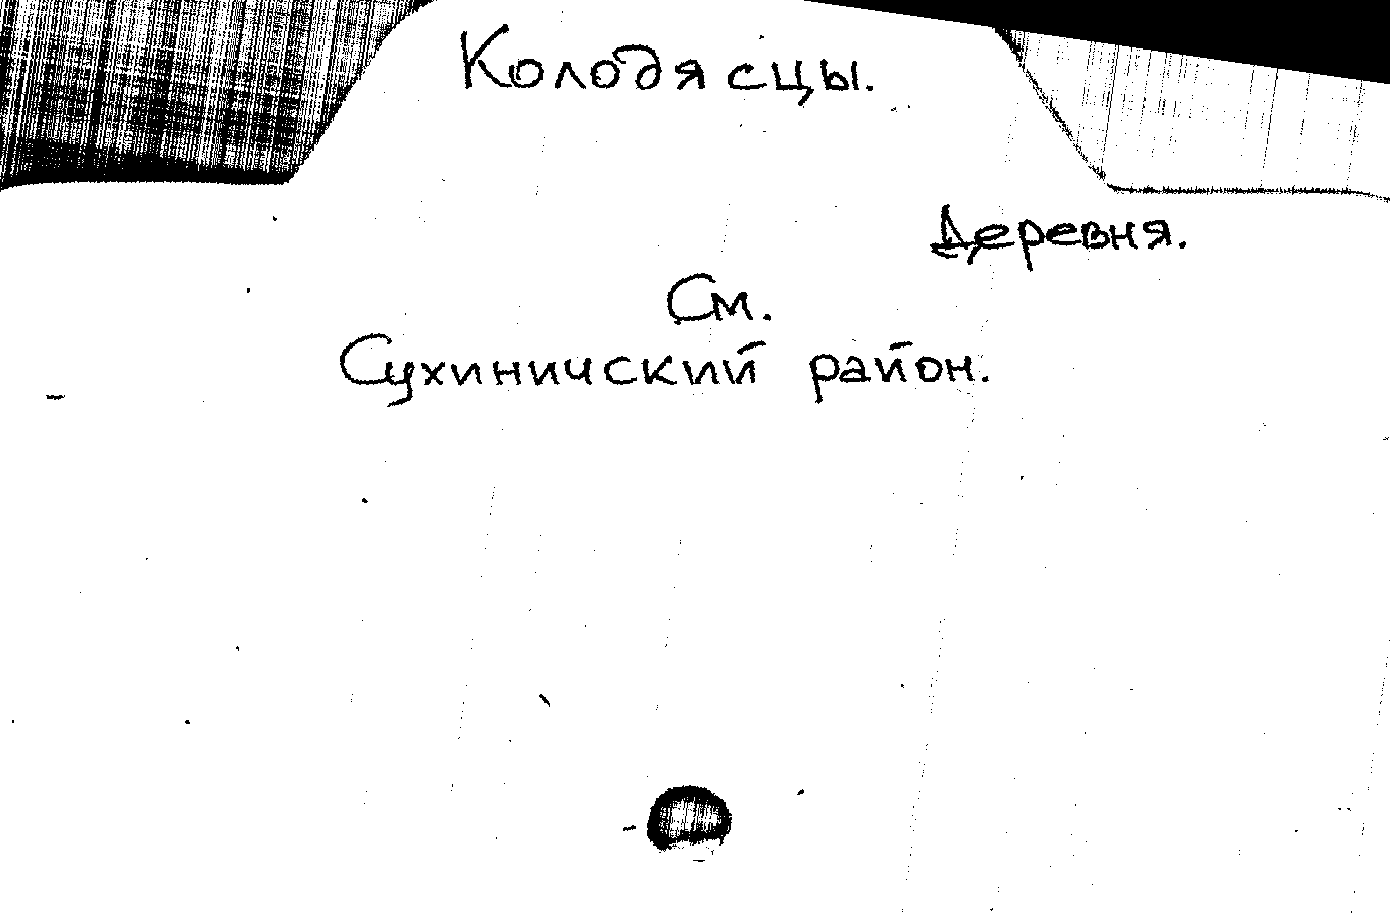 Колодясцы.
Деревня.
См.
Сухиничский район.